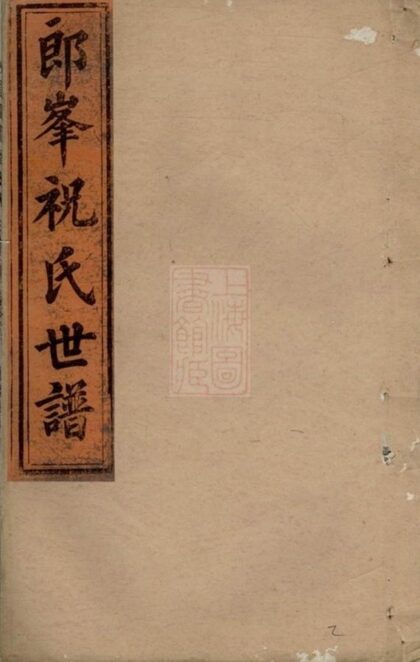 郎峯祝氏世譜
上海圖
書館藏